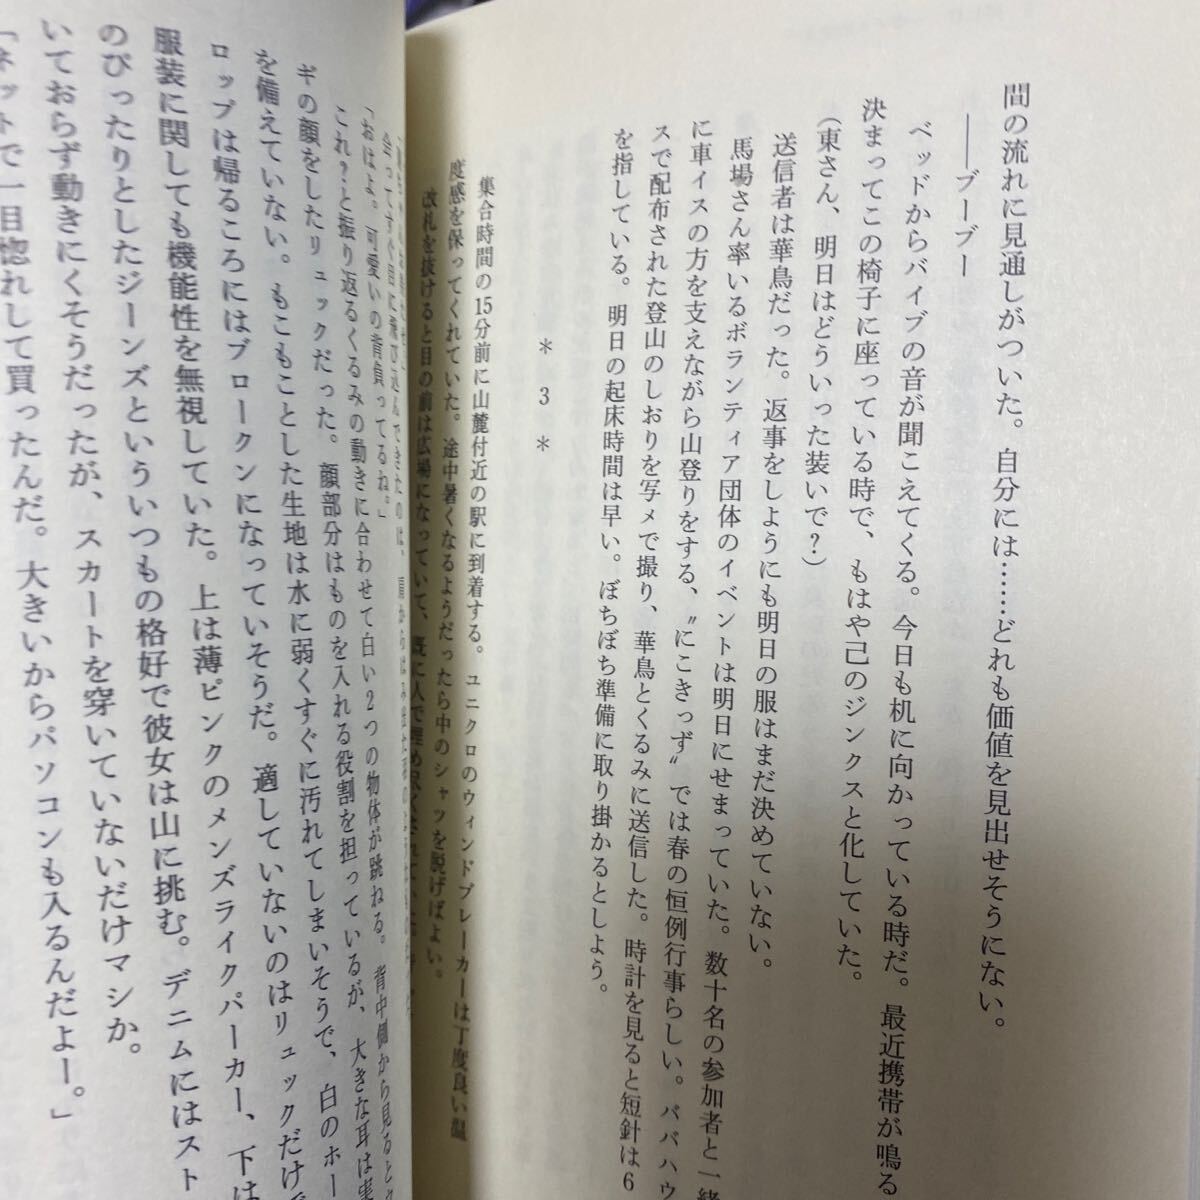 間の流れに見通しがついた。自分には……どれも価値を見出せそうにない。
――ブーブー
ベッドからバイブの音が聞こえてくる。今日も机に向かっている時だ。最近携帯が鳴る
決まってこの椅子に座っている時で、もはや己のジンクスと化していた。
（東さん、明日はどういった装いで？）
送信者は華鳥だった。返事をしようにも明日の服はまだ決めていない。
馬場さん率いるボランティア団体のイベントは明日にせまっていた。数十名の参加者と一緒
に車イスの方を支えながら山登りをする、〝にこきっず〟では春の恒例行事らしい。ババハウ
スで配布された登山のしおりを写メで撮り、華鳥とくるみに送信した。時計を見ると短針は6
を指している。明日の起床時間は早い。ぼちぼち準備に取り掛かるとしよう。
＊ 3 ＊
集合時間の15分前に山麓付近の駅に到着する。ユニクロのウィンドブレーカーは丁度良い温
度感を保ってくれていた。途中暑くなるようだったら中のシャツを脱げばよい。
改札を抜けると目の前は広場になっていて、既に人で埋め尽くされて
会ってすぐ目に飛び込んできたのは、肩からはみ出
「おはよ。可愛いの背負ってるね。」
これ？と振り返るくるみの動きに合わせて白い2つの物体が跳ねる。背中側から見るとウ
ギの顔をしたリュックだった。顔部分はものを入れる役割を担っているが、大きな耳は実
を備えていない。もこもことした生地は水に弱くすぐに汚れてしまいそうで、白のホー
ロップは帰るころにはブロークンになっていそうだ。適していないのはリュックだけで
服装に関しても機能性を無視していた。上は薄ピンクのメンズライクパーカー、下は
のぴったりとしたジーンズといういつもの格好で彼女は山に挑む。デニムにはスト
いておらず動きにくそうだったが、スカートを穿いていないだけマシか。
「ネットで一目惚れして買ったんだ。大きいからパソコンも入るんだよー。」